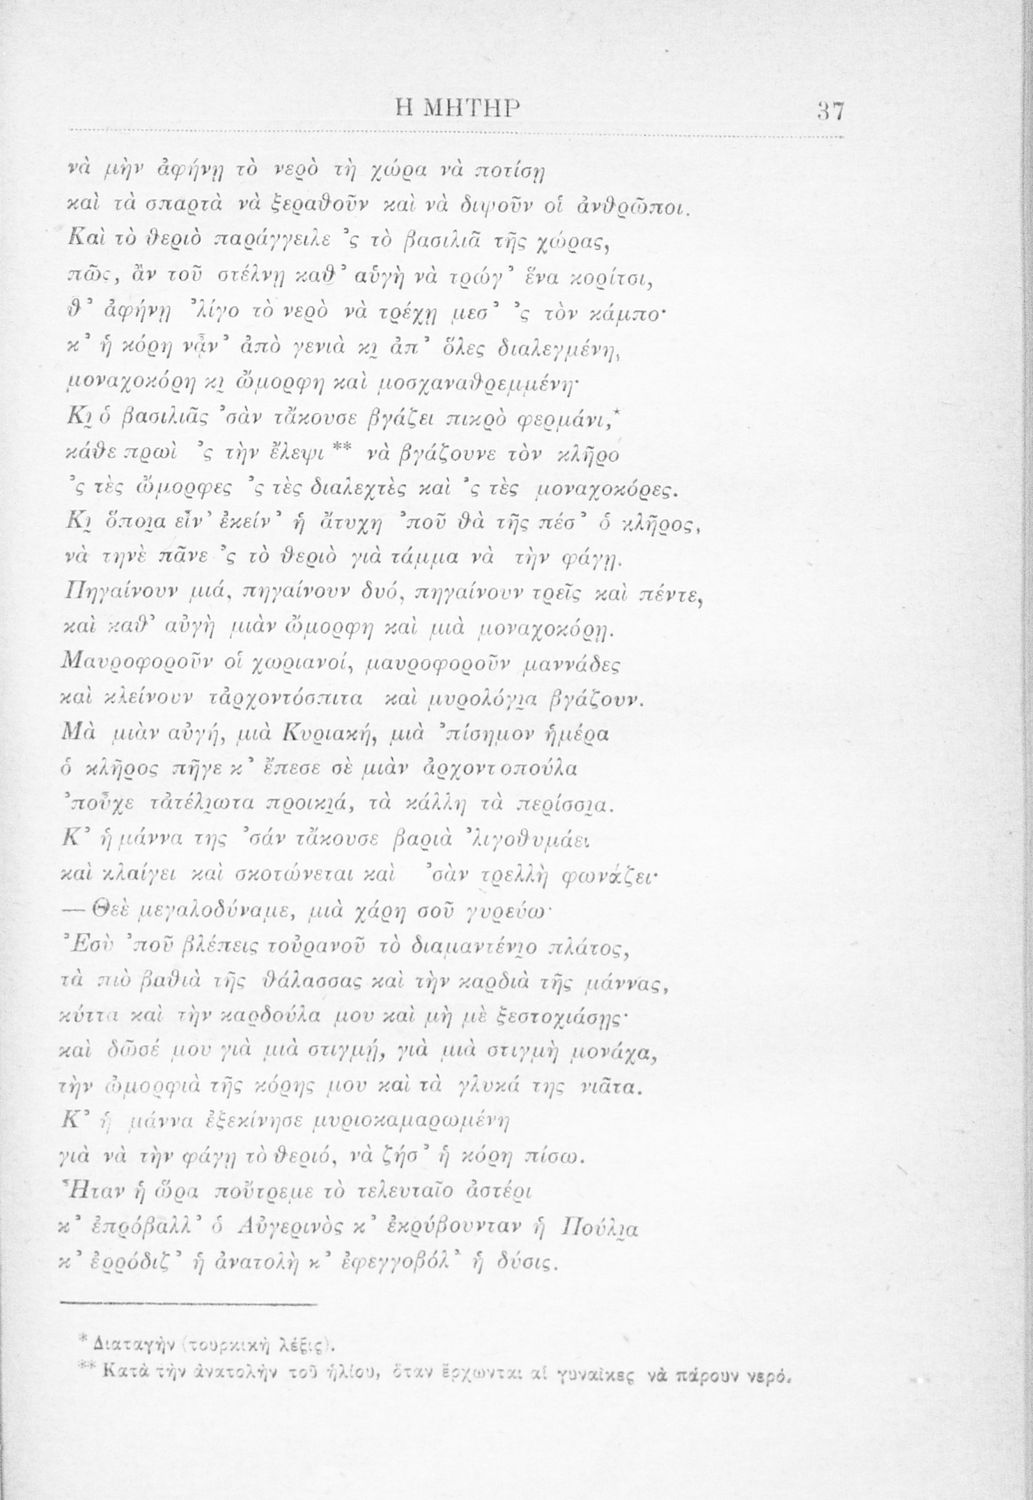 Η ΜΗΤΗΡ 37
νὰ μὴν ἀφήνῃ τὸ νερὸ τὴ χώρα νὰ ποτίσῃ
καὶ τὰ σπαρτὰ νὰ ξεραθοῦν καὶ νὰ διψοῦν οἱ ἀνθρῶποι.
Καὶ τὸ θεριὸ παράγγειλε ᾿ς τὸ βασιλιᾶ τῆς χώρας,
πῶς, ἂν τοῦ στέλνῃ καθ᾿ αὐγὴ νὰ τρώγ᾿ ἕνα κορίτσι,
θ᾿ ἀφήνῃ ᾿λίγο τὸ νερὸ νὰ τρέχῃ μεσ᾿ ᾿ς τὸν κάμπο·
κ᾿ ἡ κόρη νἆν᾿ ἀπὸ γενιὰ κι̯ ἀπ᾿ ὅλες διαλεγμένη,
μοναχοκόρη κι̯ ὤμορφη καὶ μοσχαναθρεμμένη·
Κι̯ ὁ βασιλιᾶς ᾿σὰν τἄκουσε βγάζει πικρὸ φερμάνι,*
κάθε πρωὶ ᾿ς τὴν ἔλεψι ** νὰ βγάζουνε τὸν κλῆρο
᾿ς τὲς ὤμορφες ᾿ς τὲς διαλεχτὲς καὶ ᾿ς τὲς μοναχοκόρες.
Κι̯ ὅποι̯α εἶν᾿ ἐκείν᾿ ἡ ἄτυχη ᾿ποῦ θὰ τῆς πέσ᾿ ὁ κλῆρος,
νὰ τηνὲ πᾶνε ᾿ς τὸ θεριὸ γιὰ τάμμα νὰ τὴν φάγῃ.
Πηγαίνουν μιά, πηγαίνουν δυό, πηγαίνουν τρεῖς καὶ πέντε,
καὶ καθ᾿ αὐγὴ μιὰν ὤμορφη καὶ μιὰ μοναχοκόρη.
Μαυροφοροῦν οἱ χωριανοί, μαυροφοροῦν μαννάδες
καὶ κλείνουν τἀρχοντόσπιτα καὶ μυρολόγι̯α βγάζουν.
Μὰ μιὰν αὐγή, μιὰ Κυριακή, μιὰ ᾿πίσημον ἡμέρα
ὁ κλῆρος πῆγε κ᾿ ἔπεσε σὲ μιὰν ἀρχοντοπούλα
᾿ποὖχε τἀτέλι̯ωτα προικι̯ά, τὰ κάλλη τὰ περίσσι̯α.
Κ᾿ ἡ μάννα της ᾿σάν τἄκουσε βαριὰ ᾿λιγοθυμάει
καὶ κλαίγει καὶ σκοτώνεται καὶ ᾿σὰν τρελλὴ φωνάζει·
— Θεὲ μεγαλοδύναμε, μιὰ χάρη σοῦ γυρεύω·
᾿Εσὺ ᾿ποῦ βλέπεις τοὐρανοῦ τὸ διαμαντένι̯ο πλάτος,
τὰ πιὸ βαθιὰ τῆς θάλασσας καὶ τὴν καρδιὰ τῆς μάννας,
κύττα καὶ τὴν καρδούλα μου καὶ μὴ μὲ ξεστοχιάσῃς·
καὶ δῶσέ μου γιὰ μιὰ στιγμή, γιὰ μιὰ στιγμὴ μονάχα,
τὴν ὠμορφιὰ τῆς κόρης μου καὶ τὰ γλυκά της νιᾶτα.
Κ᾿ ἡ μάννα ἐξεκίνησε μυριοκαμαρωμένη
γιὰ νὰ τὴν φάγῃ τὸ θεριό, νὰ ζήσ᾿ ἡ κόρη πίσω.
Ἦταν ἡ ὥρα ποὔτρεμε τὸ τελευταῖο ἀστέρι
κ᾿ ἐπρόβαλλ᾿ ὁ Αὐγερινὸς κ᾿ ἐκρύβουνταν ἡ Πούλι̯α
κ᾿ ἐρρόδιζ᾿ ἡ ἀνατολὴ κ᾿ ἐφεγγοβόλ᾿ ἡ δύσις.
* Διαταγὴν (τουρκικὴ λέξις).
** Κατὰ τὴν ἀνατολὴν τοῦ ἡλίου, ὅταν ἔρχωνται αἱ γυναῖκες νὰ πάρουν νερό.